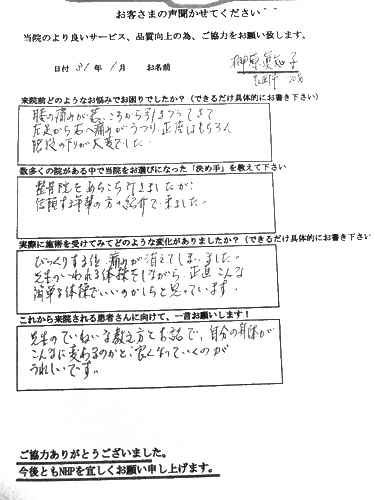 お客さまの声聞かせてください＾＾
当院のより良いサービス、品質向上の為、ご協力をお願い致します。
日付 31年 1月 お名前 榊原 恵知子
来院前どのようなお悩みでお困りでしたか？（できるだけ具体的にお書き下さい）
腰の痛みが若いころから引きつってきて
左足から右へ痛みがうつり、正座はもちろん
階段の下りが大変でした。
数多くの院がある中で当院をお選びになった「決め手」を教えて下さい
整骨院をあちこち行きましたが、
信頼する年輩の方の紹介で来ました。
実際に施術を受けてみてどのような変化がありましたか？（できるだけ具体的にお書き下さい
びっくりする位、痛みが消えてしまいました。
先生のいわれる体操をしながら、正直こんな
簡単な体操でいいのかしらと思っています。
これから来院される患者さんに向けて、一言お願いします！
先生のていねいな教え方とお話で、自分の身体が
こんなに変わるのかと、良くなっていくのが
うれしいです。
ご協力ありがとうございました。
今後ともNHPを宜しくお願い申し上げます。